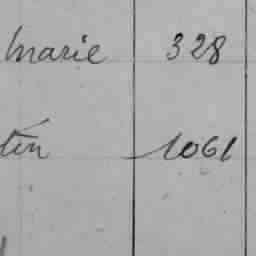 Marie 328
tin 1061